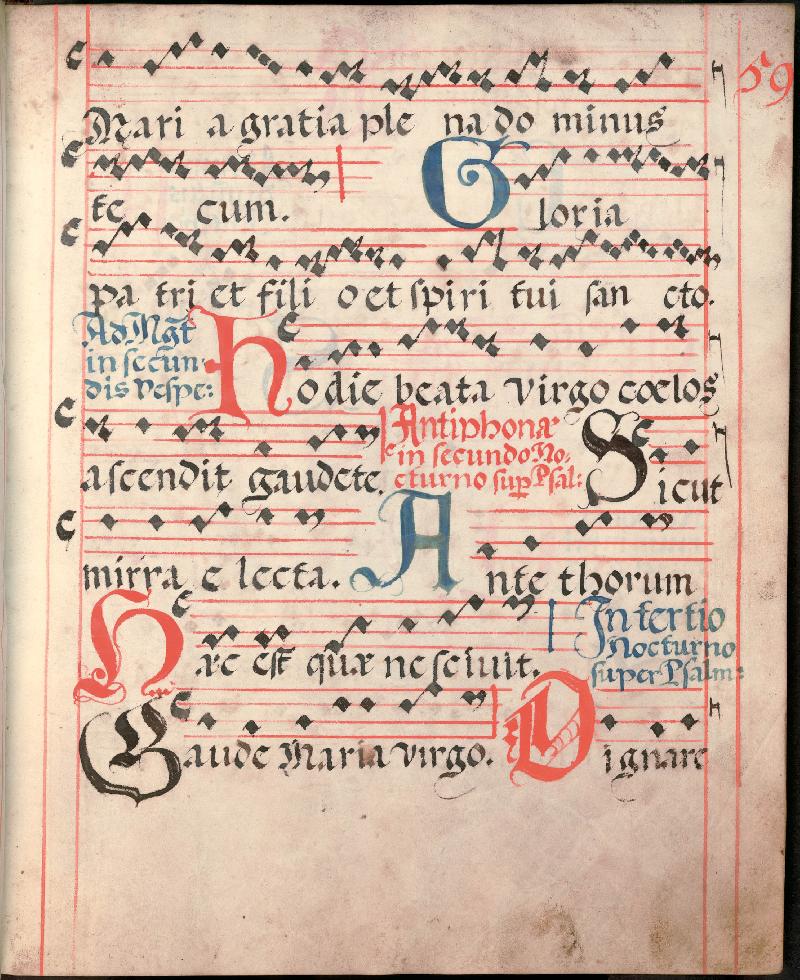 59
Mari a gratia ple na do minus
te cum. Gloria
pa tri et fili o et spiri tui san cto.
Ad Mgt
in secun-
dis Vespe:
Hodie beata Virgo cœlos
ascendit gaudete.
Antiphonæ
in secundo No-
cturno sup Psal:
Sicut
mirra e lecta. Ante thorum
Hæc est quæ nesciuit.
In tertio
Nocturno
super Psalm:
Gaude Maria virgo. Dignare